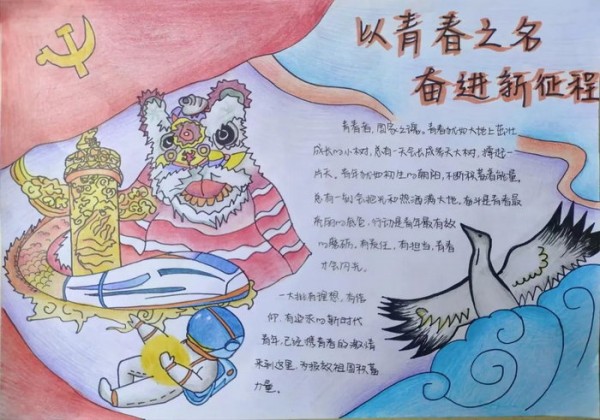 以青春之名
奋进新征程
青春者，国家之魂。青春犹如大地上茁壮
成长的小树，总有一天会长成参天大树，撑起一
片天。青年犹如初生的朝阳，不断积蓄着能量，
总有一刻会把光和热洒满大地。奋斗是青春最
亮丽的底色，行动是青年最有效
的磨砺。有责任，有担当，青春
才会闪光。
一大批有理想，有信
仰，有追求的新时代
青年，已经携青春的邀请
来到这里，为报效祖国积蓄
力量。